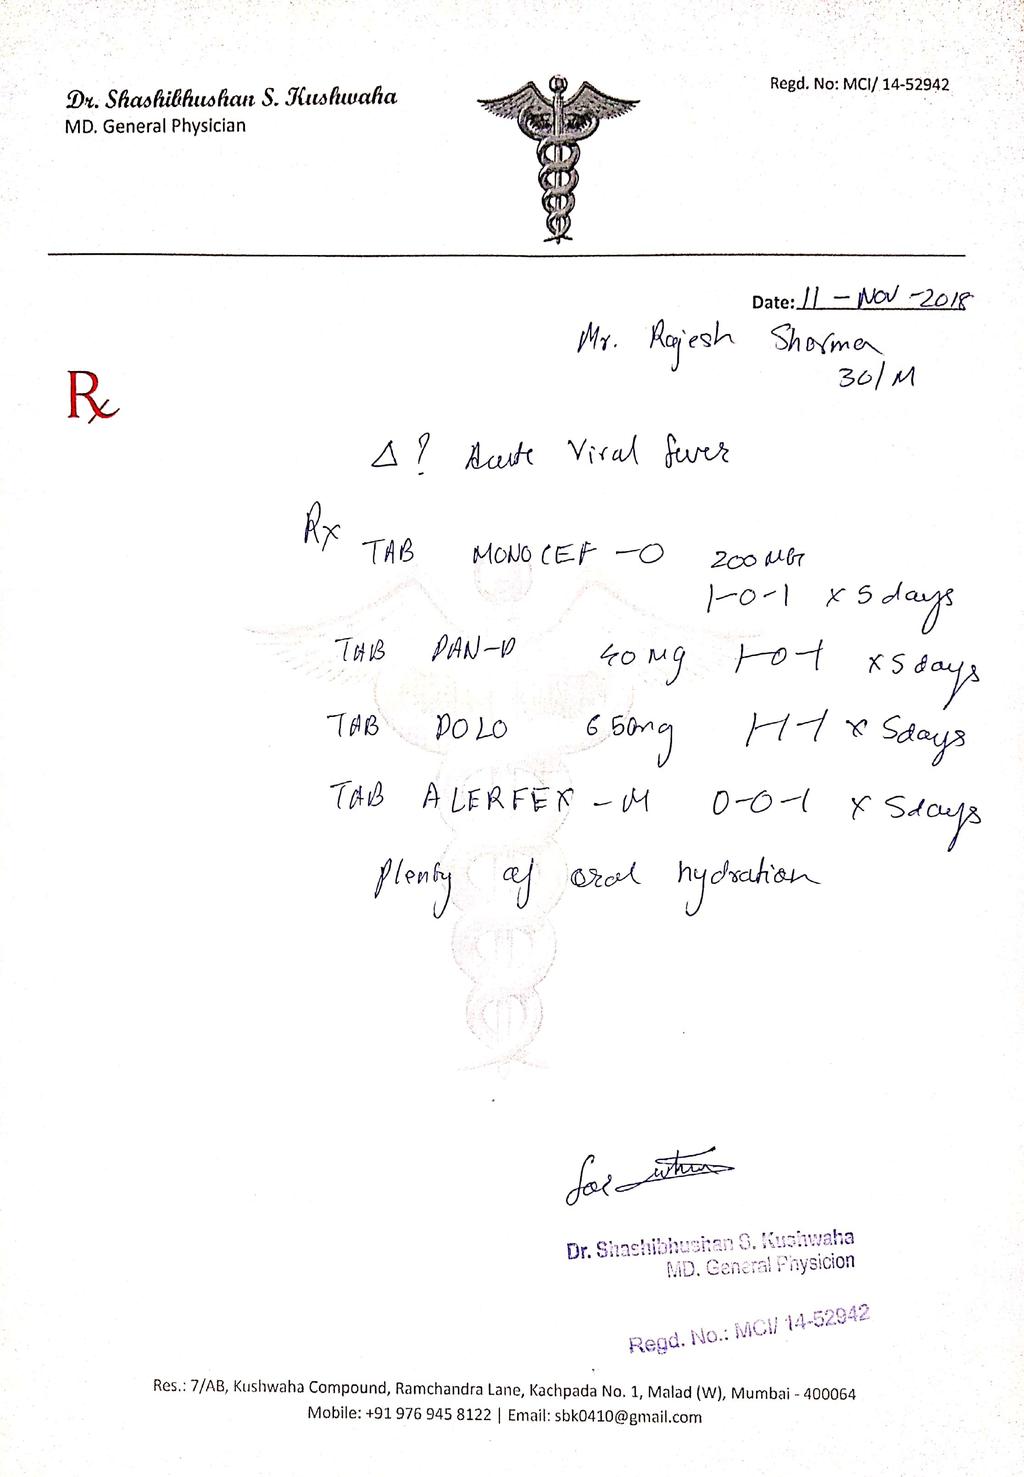 Dr. Shashibhushan S. Kushwaha
MD. General Physician
Regd. No: MCI/ 14-52942
Date: 11 - NOV - 2018
Mr. Rajesh Sharma
30/M
Rx
Δ ? Acute Viral fever
Rx
TAB MONOCEF -O 200 MG
1-0-1 x 5 days
TAB PAN-D 40 Mg 1-0-1 x 5 days
TAB DOLO 650mg 1-1-1 x 5days
TAB ALERFEX - M 0-0-1 x 5days
Plenty of oral hydration
Dr. Shashibhushan S. Kushwaha
MD. General Physicion
Regd. No.: MCI/ 14-52942
Res.: 7/AB, Kushwaha Compound, Ramchandra Lane, Kachpada No. 1, Malad (W), Mumbai - 400064
Mobile: +91 976 945 8122 | Email: sbk0410@gmail.com